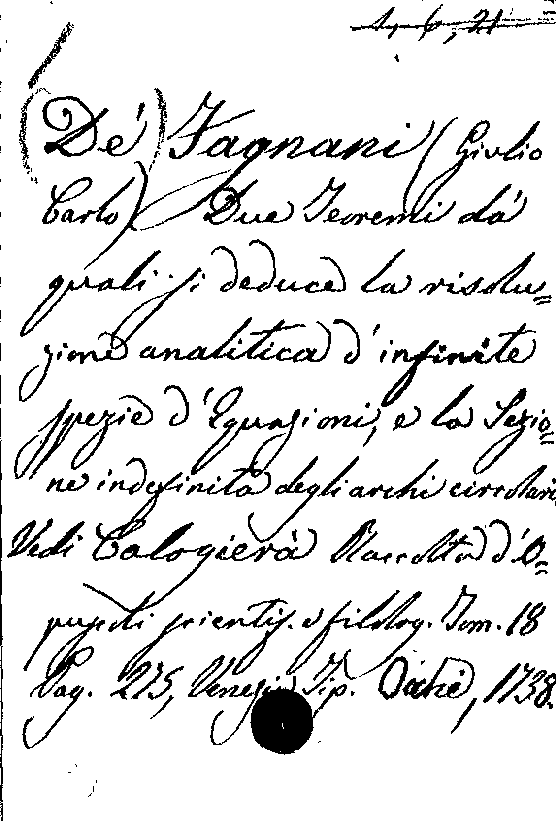 1, 6, 21
(De') Fagnani (Giulio
Carlo). Due Teoremi dá
quali si deduce la risolu=
zione analitica d'infinite
spezie d'Equazioni, e la Sezio=
ne indefinita degli archi circolari
Vedi Calogierà Raccolta d'O=
puscoli scientif. e filolog. Tom. 18
Pag. 275, Venezia Tip. 1738.